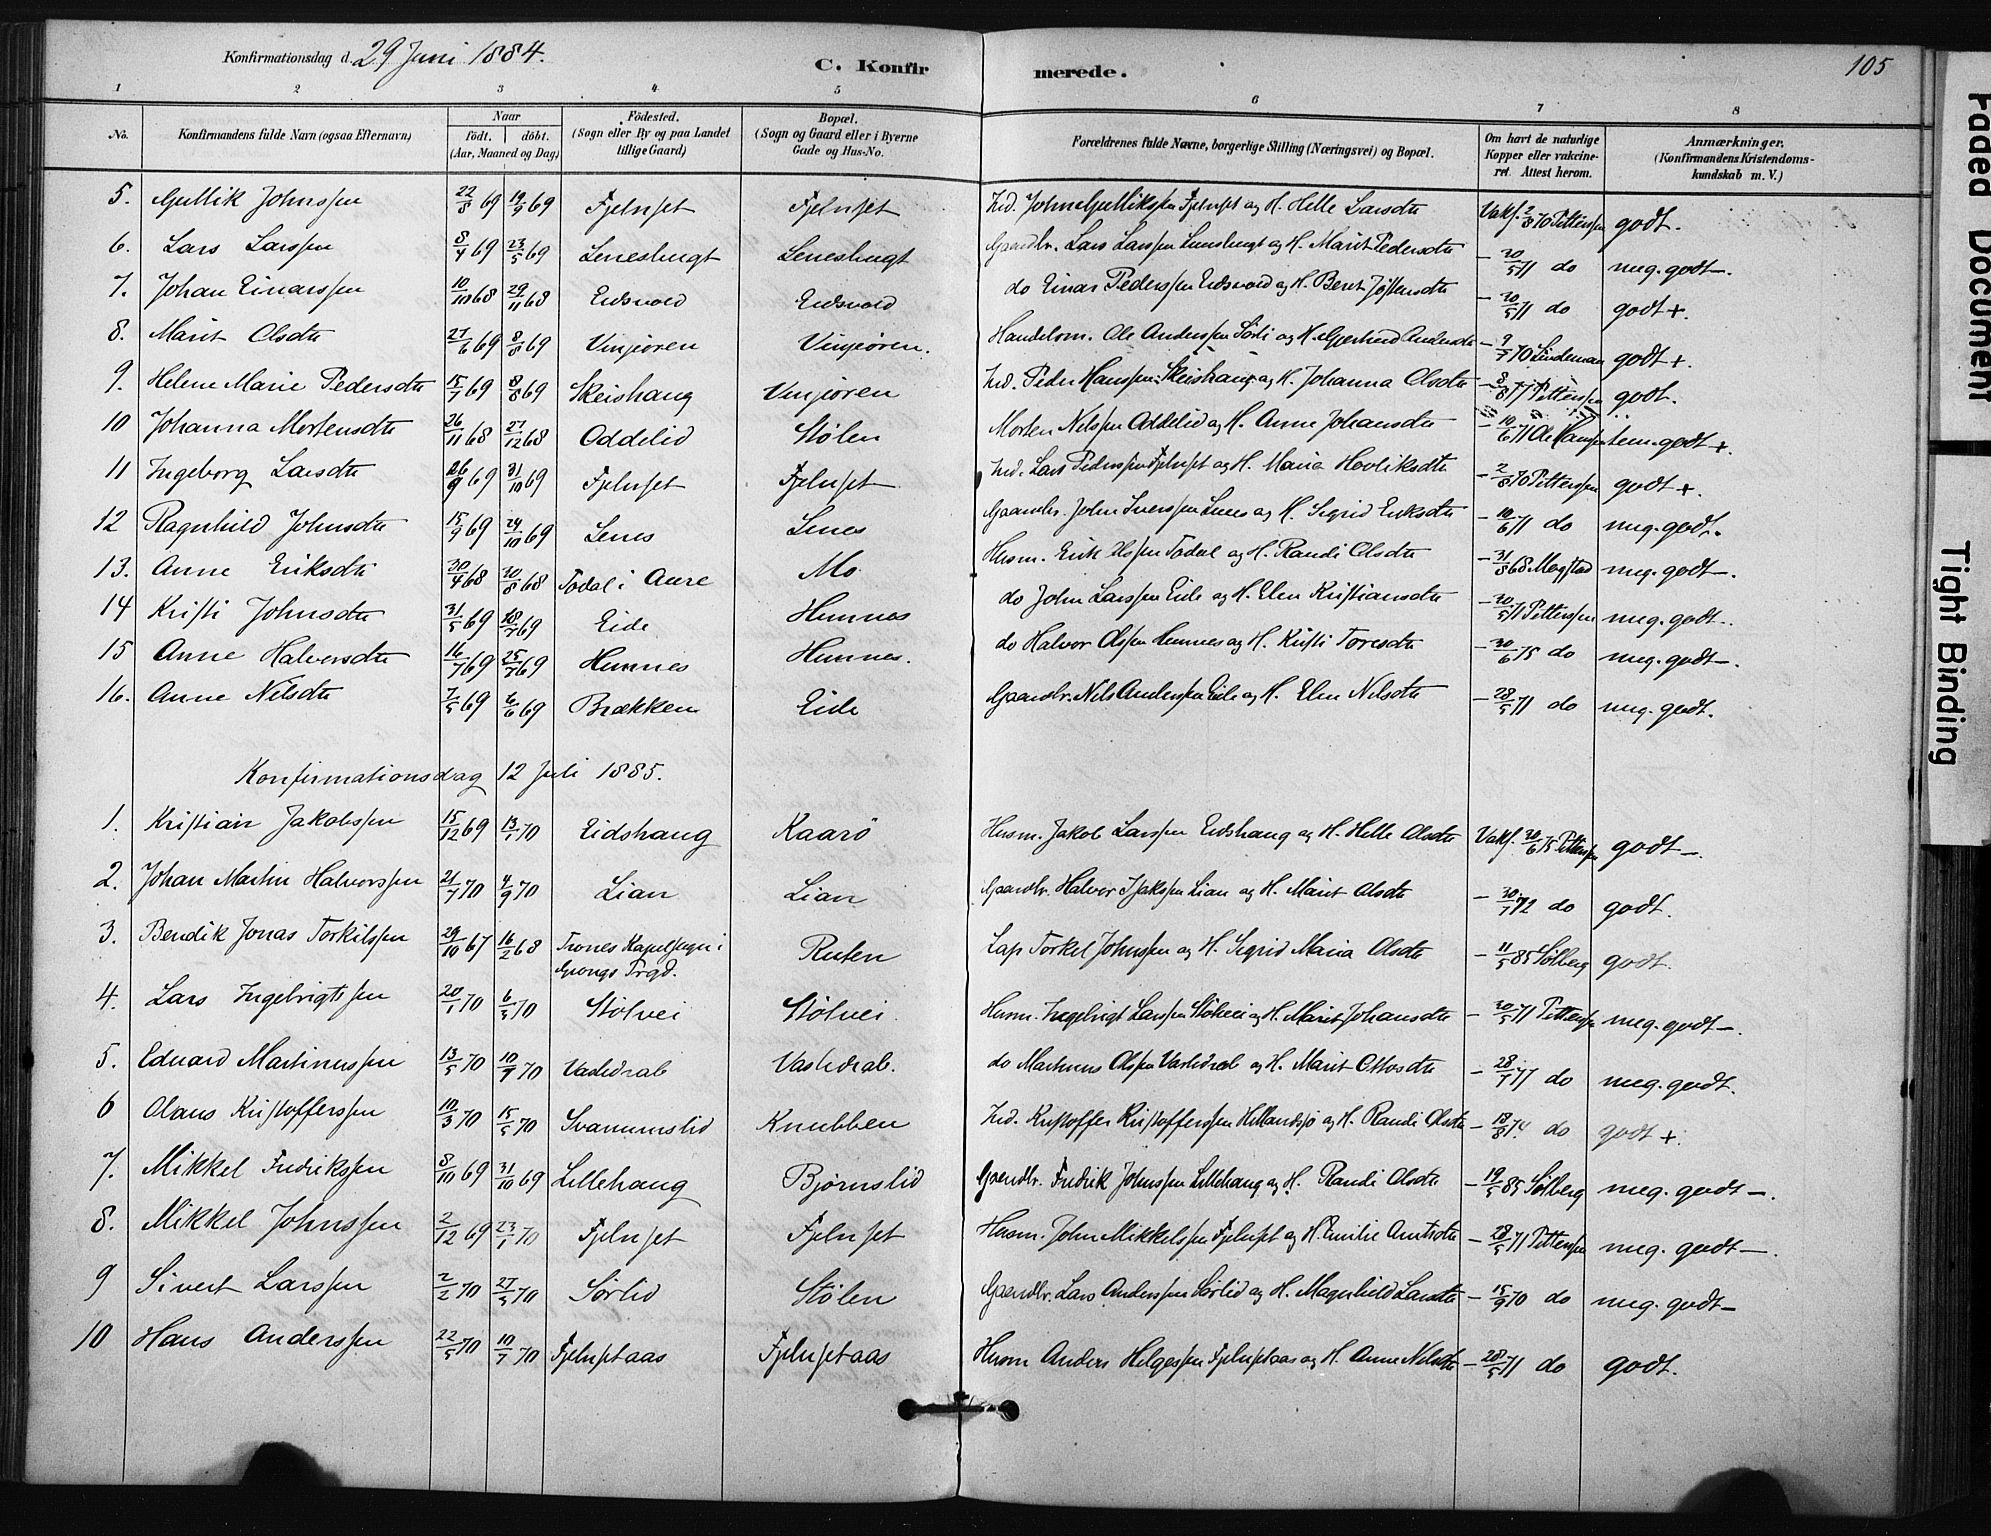 Konfirmationsdag d. 29 Juni 1884. C. Konfirmerede. 105
1 2 3 4 5 6 7 8
No. Konfirmandens fulde Navn (ogsaa Efternavn) Naar født. døbt. (Aar, Maaned og Dag) Fødested. (Sogn eller By og paa Landet tillige Gaard) Bopæl. (Sogn og Gaard eller i Byerne Gade og Hus-No. Forældrenes fulde Navne, borgerlige Stilling (Næringsvei) og Bopæl. Om havt de naturlige Kopper eller vakcineret. Attest herom. Anmærkninger. (Konfirmandens Kristendomskundskab m. V.)
5. Gullik Johnssen 22/8 69 19/9 69 Fjelnset Fjelnset Ind. John Gullikssen Fjelnset og H. Helle Larsdtr Vakc. 2/8 70 Pettersen godt.
6. Lars Larssen 8/4 69 23/5 69 Leneshugt Leneshugt Gaardbr. Lars Larssen Leneshugt og H. Marit Pedersdtr - 30/5 71 do meg. godt -.
7. Johan Einarssen 10/10 68 29/11 68 Eidsvold Eidsvold do Einar Pederssen Eidsvold og H. Beret Jøstensdtr - 30/5 71 do godt +.
8. Marit Olsdtr 27/6 69 8/8 69 Vinjeøren Vinjeøren. Handelsm. Ole Anderssen Sødi og H. Gjertrud Andersdtr - 9/7 70 Lindeman godt +.
9. Helene Marie Pedersdtr 15/7 69 8/8 69 Skeishaug Vinjeøren Ind. Peder Hanssen Skeishaug og H. Johanna Olsdtr - 8/8 77 Pettersen godt.
10 Johanna Mortensdtr 26/11 68 27/12 68 Oddelid Stølen Morten Nilssen Oddelid og H. Anne Johansdtr - 10/6 71 Ole Hansen tem. godt +.
11 Ingeborg Larsdtr 26/9 69 31/10 69 Fjelnset Fjelnset Ind. Lars Pederssen Fjelnset og H. Maria Hovliksdtr - 2/8 70 Pettersen godt +.
12 Ragnhild Johnsdtr 15/9 69 24/10 69 Lenes Lenes Gaardbr. John Iverssen Lenes og H. Sigrid Eriksdtr - 10/6 71 do meg. godt.
13. Anne Eriksdtr 30/4 68 30/8 68 Todal i Aure Mo Husm. Erik Olssen Todal og H. Randi Olsdtr - 31/8 68 Mogstad meg. godt -.
14 Kristi Johnsdtr 31/5 69 18/7 69 Eide Hennes do John Larssen Eide og H. Elen Kristiansdtr - 30/5 71 Pettersen meg. godt -.
15 Anne Halvorsdtr 16/7 69 25/7 69 Hennes Hennes. do Halvor Olssen Hennes og H. Kristi Toresdtr - 30/6 75 do meg. godt -.
16. Anne Nilsdtr 7/5 69 6/6 69 Brækken Eide Gaardbr. Nils Anderssen Eide og H. Elen Nilsdtr - 28/5 71 do meg. godt.
Konfirmationsdag 12 Juli 1885.
1. Kristian Jakobssen 15/12 69 13/1 70 Eidshaug Kaarø Husm. Jakob Larssen Eidshaug og H. Helle Olsdtr Vakc. 30/6 75 Pettersen godt -.
2. Johan Martin Halvorssen 21/7 70 4/9 70 Lian Lian Gaardbr. Halvor Isakssen Lian og H. Marit Olsdtr - 30/7 72 do godt.
3. Bendik Jonas Torkilssen 29/10 67 16/2 68 Trones Kapelsogn i Grongs Prgd. Ruten Lap Torkel Johnssen og H. Sigrid Maria Olsdtr - 11/5 85 Sølberg godt.
4. Lars Ingebrigtssen 20/1 70 6/5 70 Stølvei Stølvei Husm. Ingebrigt Larssen Stølvei og H. Marit Johansdtr - 30/5 71 Pettersen meg. godt -.
5. Edvard Martinussen 13/5 70 10/7 70 Vaslidrab Vaslidrab. do Martinus Olssen Vaslidrab og H. Marit Ottosdtr - 28/7 77 do meg. godt.
6 Olaus Kristofferssen 10/3 70 15/5 70 Svanumslid Knubben Ind. Kristoffer Kristofferssen Hillandsjø og H. Randi Olsdtr - 18/8 74. do godt +.
7. Mikkel Fredrikssen 8/10 69 31/10 69 Lillehaug Bjørnslid Gaardbr. Fredrik Johnssen Lillehaug og H. Randi Olsdtr - 19/5 85 Sølberg meg. godt -.
8. Mikkel Johnssen 2/12 69 23/1 70 Fjelnset Fjelnset Husm. John Mikkelssen Fjelnset og H. Emilie Arntsdtr - 28/5 71 Pettersen meg. godt -.
9 Sivert Larssen 2/2 70 27/3 70 Sørlid Stølen Gaardbr. Lars Anderssen Sørlid og H. Magnhild Larsdtr - 15/9 70 do meg. godt -
10 Hans Anderssen 22/5 70 10/7 70 Fjelnsetaas Fjelnsetaas Husm Anders Helgessen Fjelnsetaas og H. Anne Nilsdtr - 28/5 71 do godt.
Faded Document
Tight Binding